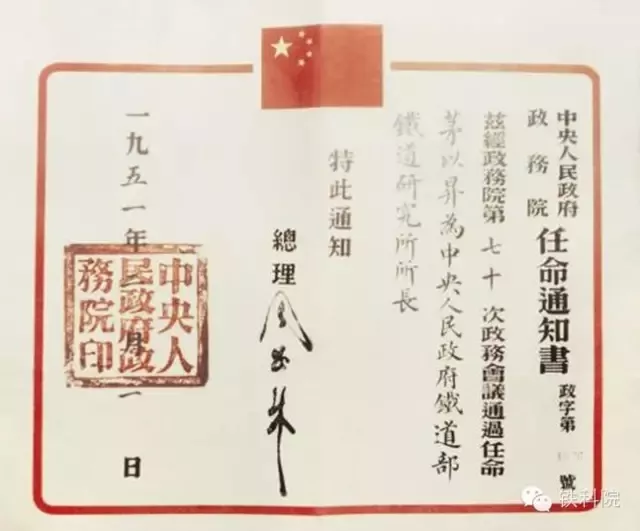 中央人民政府
政務院
任命通知書
政字第 號
茲經政務院第七十次政務會議通過任命
茅以昇為中央人民政府鐵道部
鐵道研究所所長
特此通知
總理 周恩來
一九五一年二月一日
中央人
民政府政
務院印
铁科院